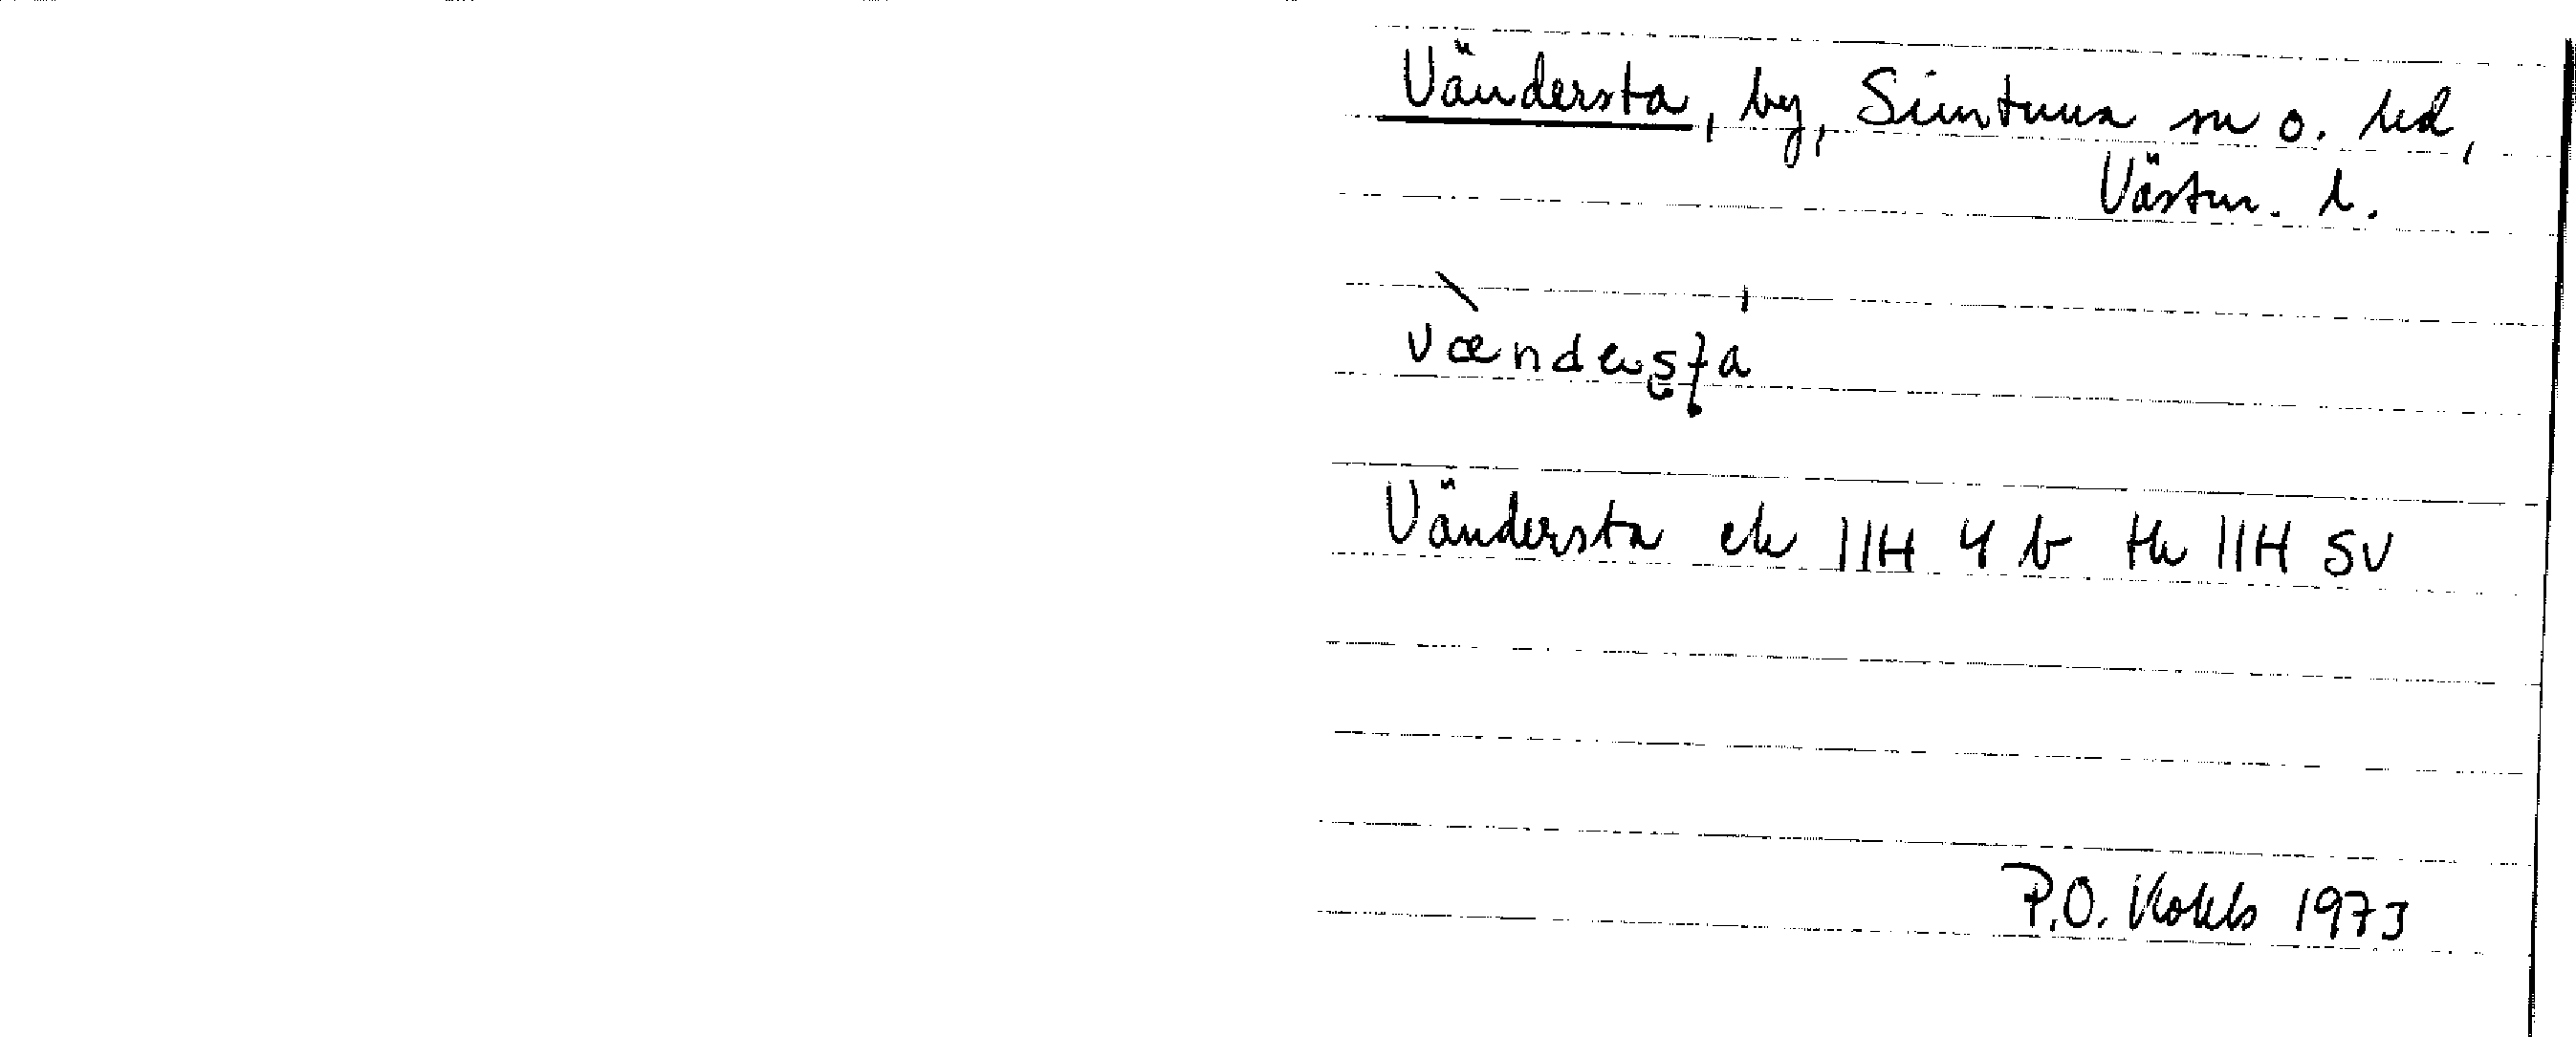 Vändersta, by, Simtuna sn o. hd,
Västm. l.
vændeʂʈa
Vändersta ek 11H 4 b tk 11H SV
P.O. 1973